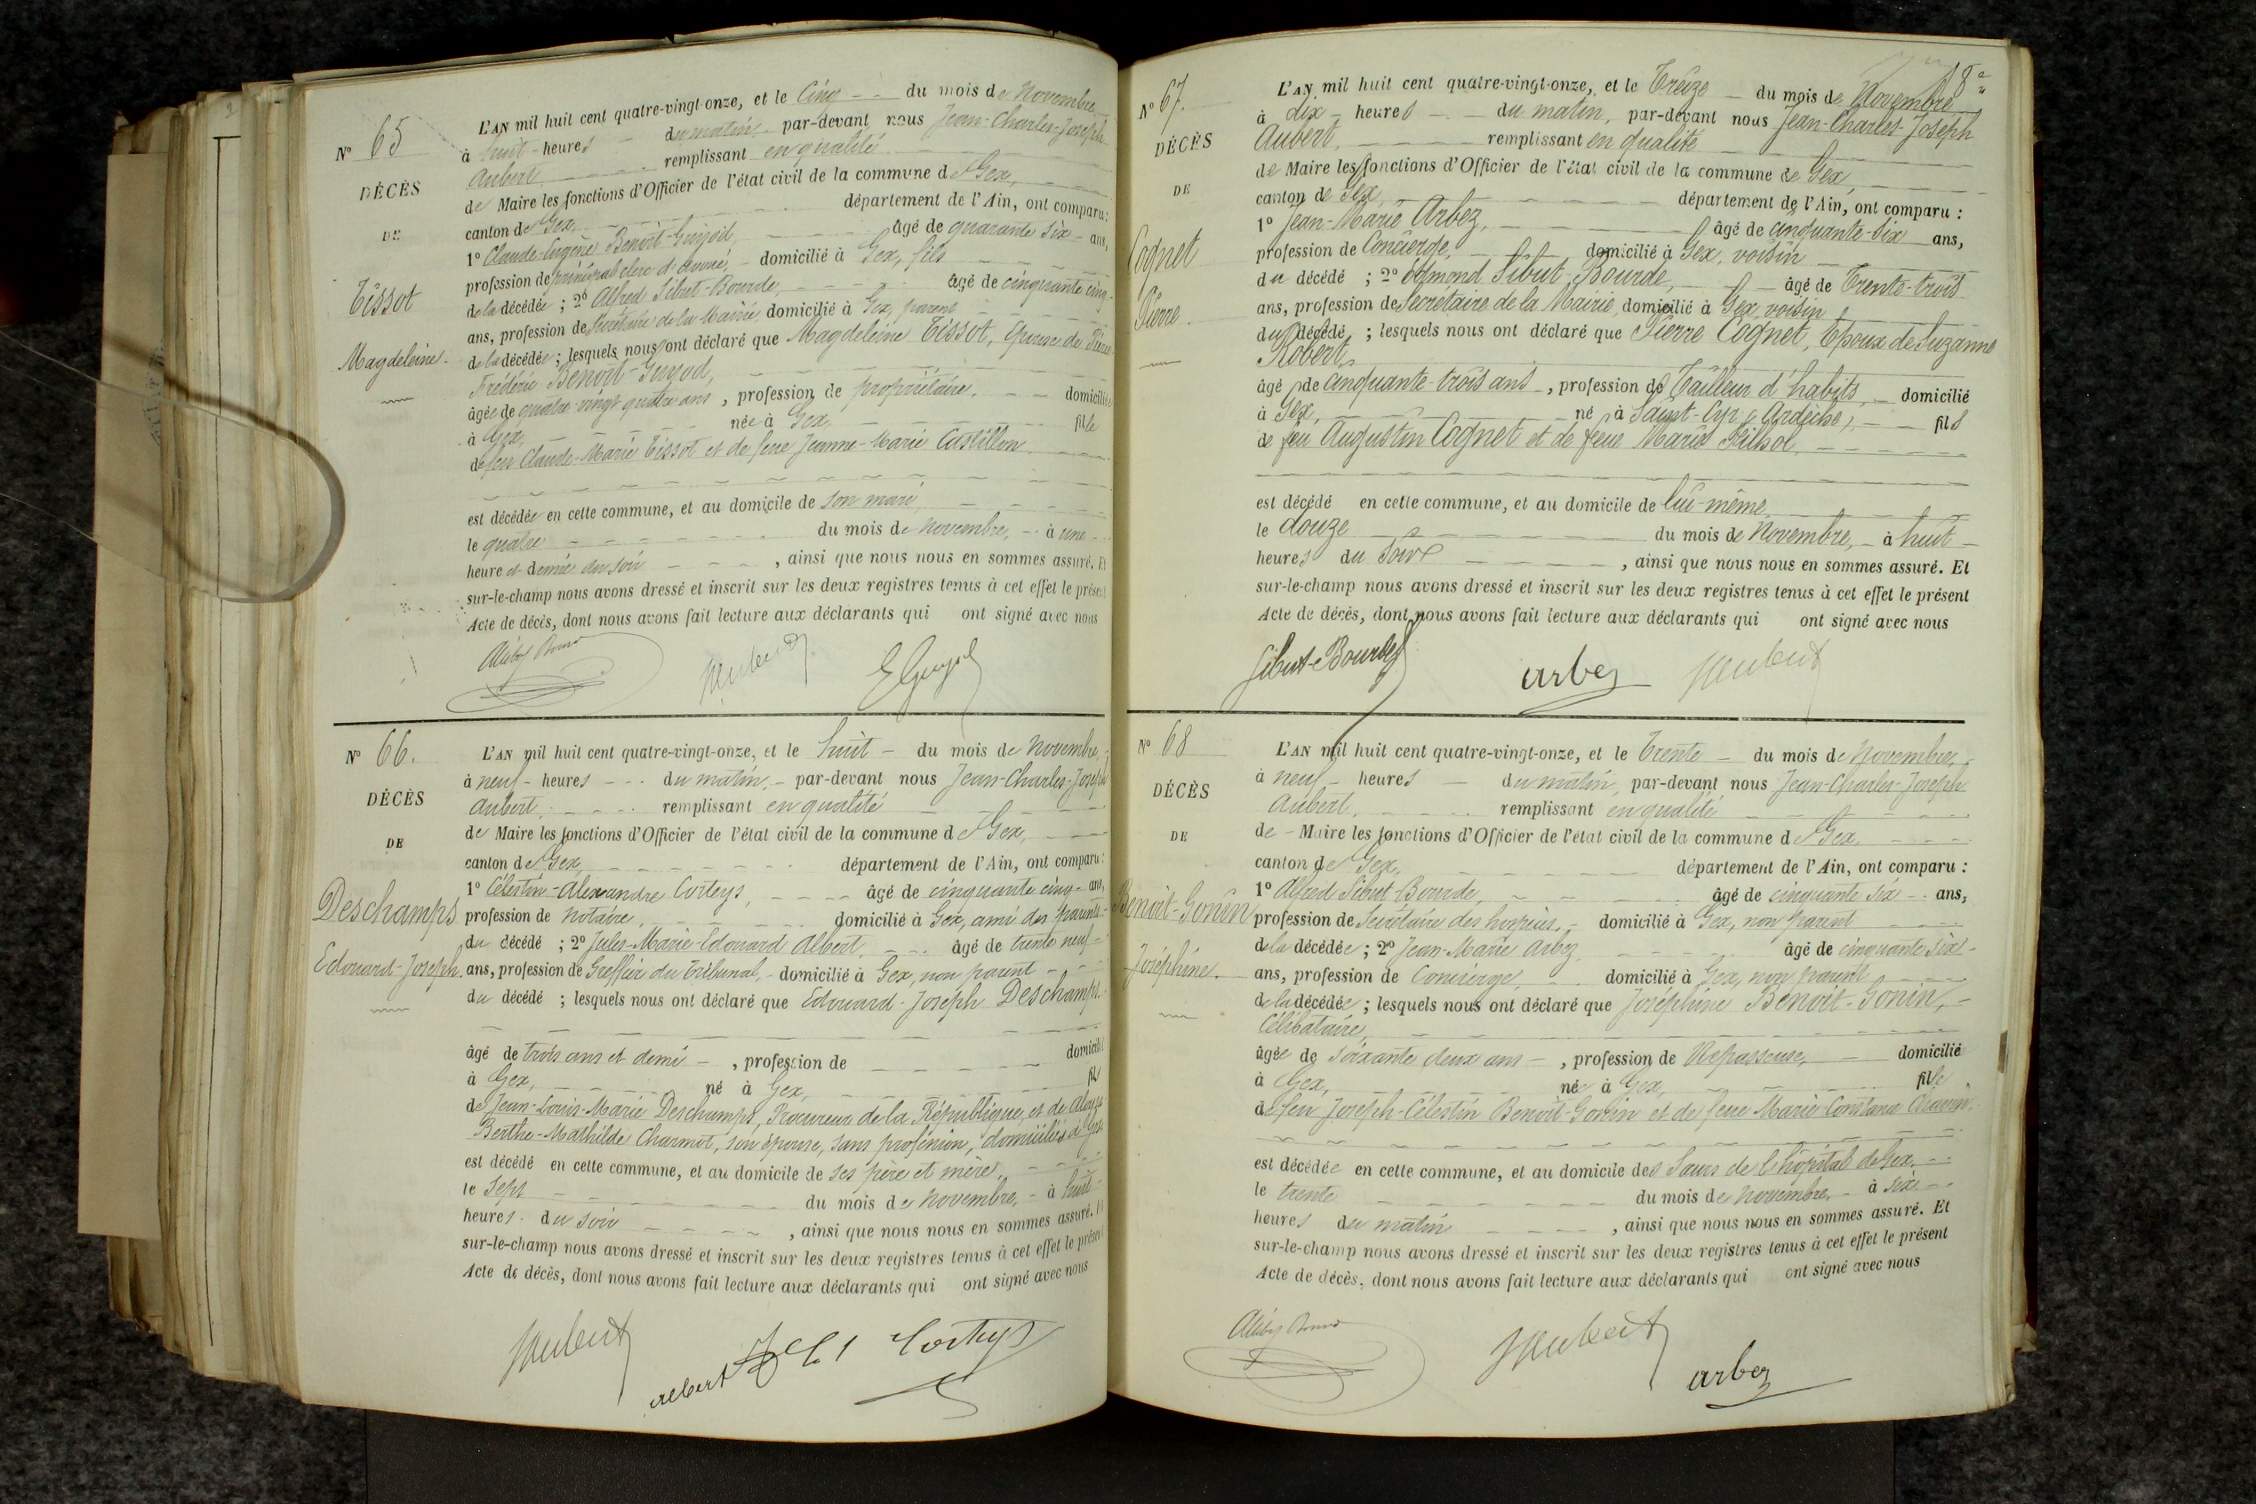 Nº 65
DÉCÈS
DE
Tissot
Magdeleine
L'AN mil huit cent quatre-vingt-onze, et le Cinq du mois de Novembre,
à huit heures du matin, par-devant nous Jean-Charles-Joseph
Aubert, remplissant en qualité
de Maire les fonctions d'Officier de l'état civil de la commune de Gex,
canton de Gex, département de l'Ain, ont comparu :
1º Claude-Eugène Benoit-Guyod, âgé de quarante six ans,
profession de principal clerc d'avoué, domicilié à Gex, fils
de la décédée ; 2º Alfred Sibut-Bourde, âgé de cinquante cinq
ans, profession de Secrétaire de la Mairie, domicilié à Gex, parent
de la décédée ; lesquels nous ont déclaré que Magdeleine Tissot, épouse de Pierre
Frédéric Benoit-Guyod,
âgée de quatre-vingt quatre ans, profession de propriétaire, domiciliée
à Gex, née à Gex, fille
de feu Claude-Marie Tissot et de feue Jeanne-Marie Castillon
est décédée en cette commune, et au domicile de son mari,
le quatre du mois de novembre, à une
heure et demie du soir, ainsi que nous nous en sommes assuré. Et
sur-le-champ nous avons dressé et inscrit sur les deux registres tenus à cet effet le présent
Acte de décès, dont nous avons fait lecture aux déclarants qui ont signé avec nous
JAubert EGuyod
Nº 66.
DÉCÈS
DE
Deschamps
Edouard-Joseph.
L'AN mil huit cent quatre-vingt-onze, et le huit du mois de Novembre,
à neuf heures du matin, par-devant nous Jean-Charles-Joseph
Aubert, remplissant en qualité
de Maire les fonctions d'Officier de l'état civil de la commune de Gex,
canton de Gex, département de l'Ain, ont comparu :
1º Célestin-Alexandre Corteys, âgé de cinquante cinq ans,
profession de notaire, domicilié à Gex, ami des parents
du décédé ; 2º Jules-Marie-Edouard Albert, âgé de trente neuf
ans, profession de Greffier du Tribunal, domicilié à Gex, non parent
du décédé ; lesquels nous ont déclaré que Edouard-Joseph Deschamps
âgé de trois ans et demi, profession de domicilié
à Gex, né à Gex, fils
de Jean-Louis-Marie Deschamps, Procureur de la République, et de
Berthe-Mathilde Charmot, son épouse, sans profession, domiciliés à Gex
est décédé en cette commune, et au domicile de ses père et mère,
le sept du mois de novembre, à huit
heures du soir, ainsi que nous nous en sommes assuré. Et
sur-le-champ nous avons dressé et inscrit sur les deux registres tenus à cet effet le présent
Acte de décès, dont nous avons fait lecture aux déclarants qui ont signé avec nous
JAubert Albert Corteys
18
Nº 67.
DÉCÈS
DE
Cognet
Pierre
L'AN mil huit cent quatre-vingt-onze, et le Treize du mois de Novembre
à dix heures du matin, par-devant nous Jean-Charles-Joseph
Aubert, remplissant en qualité
de Maire les fonctions d'Officier de l'état civil de la commune de Gex,
canton de Gex, département de l'Ain, ont comparu :
1º Jean-Marie Arbez, âgé de cinquante-six ans,
profession de Concierge, domicilié à Gex, voisin
du décédé ; 2º Edmond Sibut-Bourde, âgé de Trente-trois
ans, profession de Secrétaire de la Mairie, domicilié à Gex, voisin
du décédé ; lesquels nous ont déclaré que Pierre Cognet, Epoux de Suzanne
Robert,
âgé de cinquante-trois ans, profession de Tailleur d'habits, domicilié
à Gex, né à Saint-Cyr (Ardèche), fils
de feu Augustin Cognet et de feue Marie
est décédé en cette commune, et au domicile de lui-même,
le douze du mois de Novembre, à huit
heures du soir, ainsi que nous nous en sommes assuré. Et
sur-le-champ nous avons dressé et inscrit sur les deux registres tenus à cet effet le présent
Acte de décès, dont nous avons fait lecture aux déclarants qui ont signé avec nous
Sibut-Bourde arbez JAubert
Nº 68
DÉCÈS
DE
Benoit-Gonin
Joséphine.
L'AN mil huit cent quatre-vingt-onze, et le Trente du mois de Novembre,
à neuf heures du matin, par-devant nous Jean-Charles-Joseph
Aubert, remplissant en qualité
de Maire les fonctions d'Officier de l'état civil de la commune de Gex,
canton de Gex, département de l'Ain, ont comparu :
1º Alfred Sibut-Bourde, âgé de cinquante six ans,
profession de Secrétaire des hospices, domicilié à Gex, non parent
de la décédée ; 2º Jean-Marie Arbez, âgé de cinquante six
ans, profession de Concierge, domicilié à Gex, non parent
de la décédée ; lesquels nous ont déclaré que Joséphine Benoit-Gonin,
Célibataire,
âgée de soixante deux ans, profession de Repasseuse, domiciliée
à Gex, née à Gex, fille
de feu Joseph-Célestin Benoit-Gonin et de feue Marie-Constance
est décédée en cette commune, et au domicile des Sœurs de l'hôpital de Gex,
le trente du mois de novembre, à six
heures du matin, ainsi que nous nous en sommes assuré. Et
sur-le-champ nous avons dressé et inscrit sur les deux registres tenus à cet effet le présent
Acte de décès, dont nous avons fait lecture aux déclarants qui ont signé avec nous
JAubert arbez